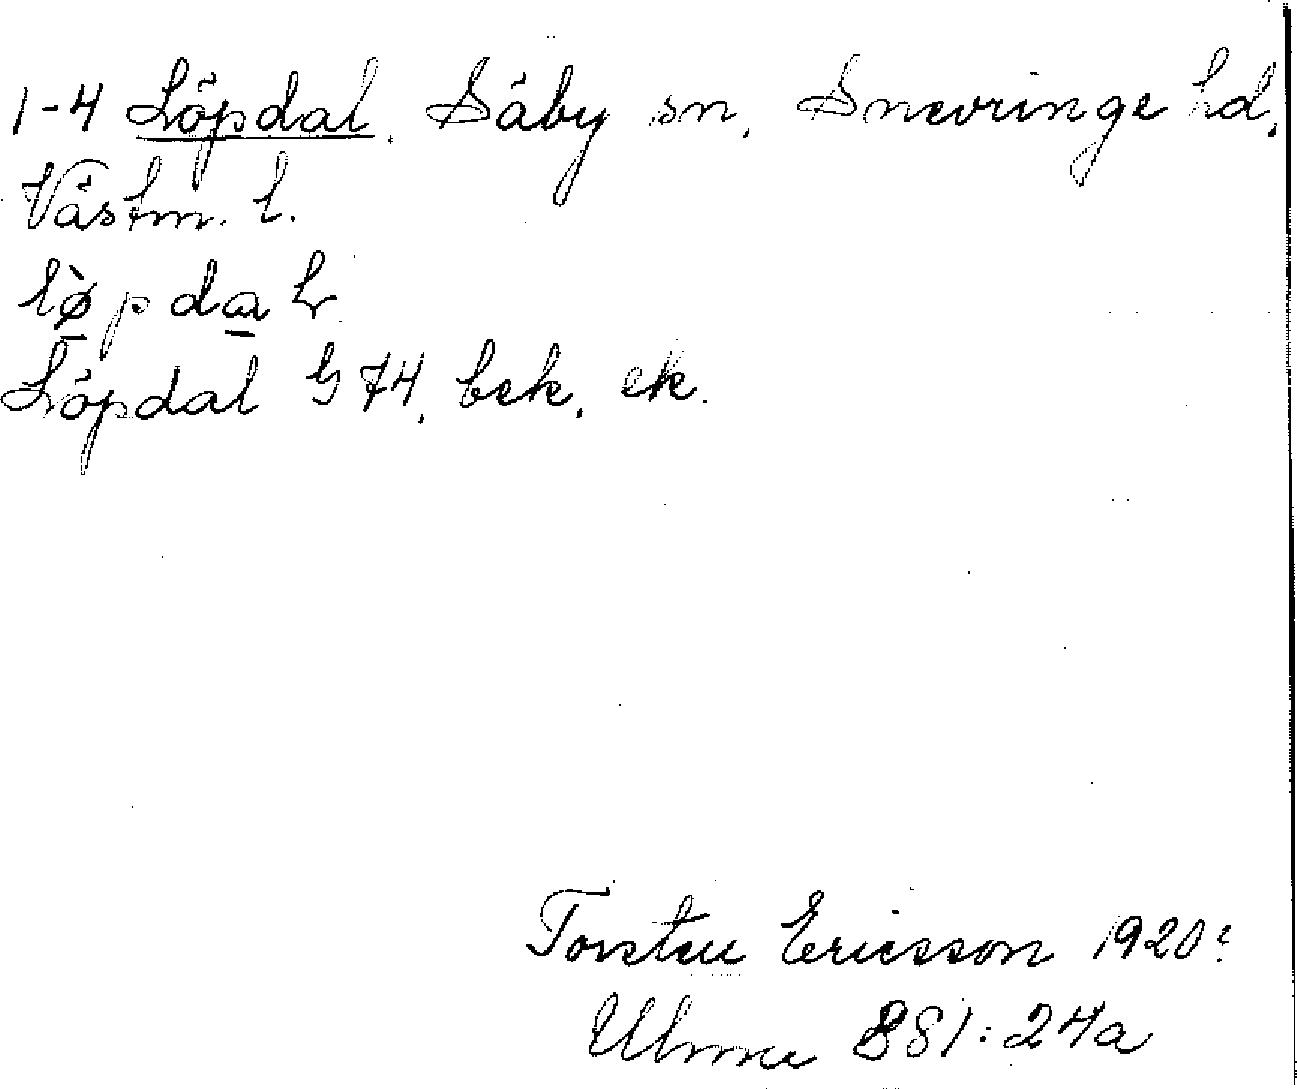 1-4 Löpdal. Säby sn, Snevringe hd,
Västm. l.
lø̀pdaɬ
Löpdal G 74, bek, ek.
Torsten Ericsson 1920?
Ulma 881:24a